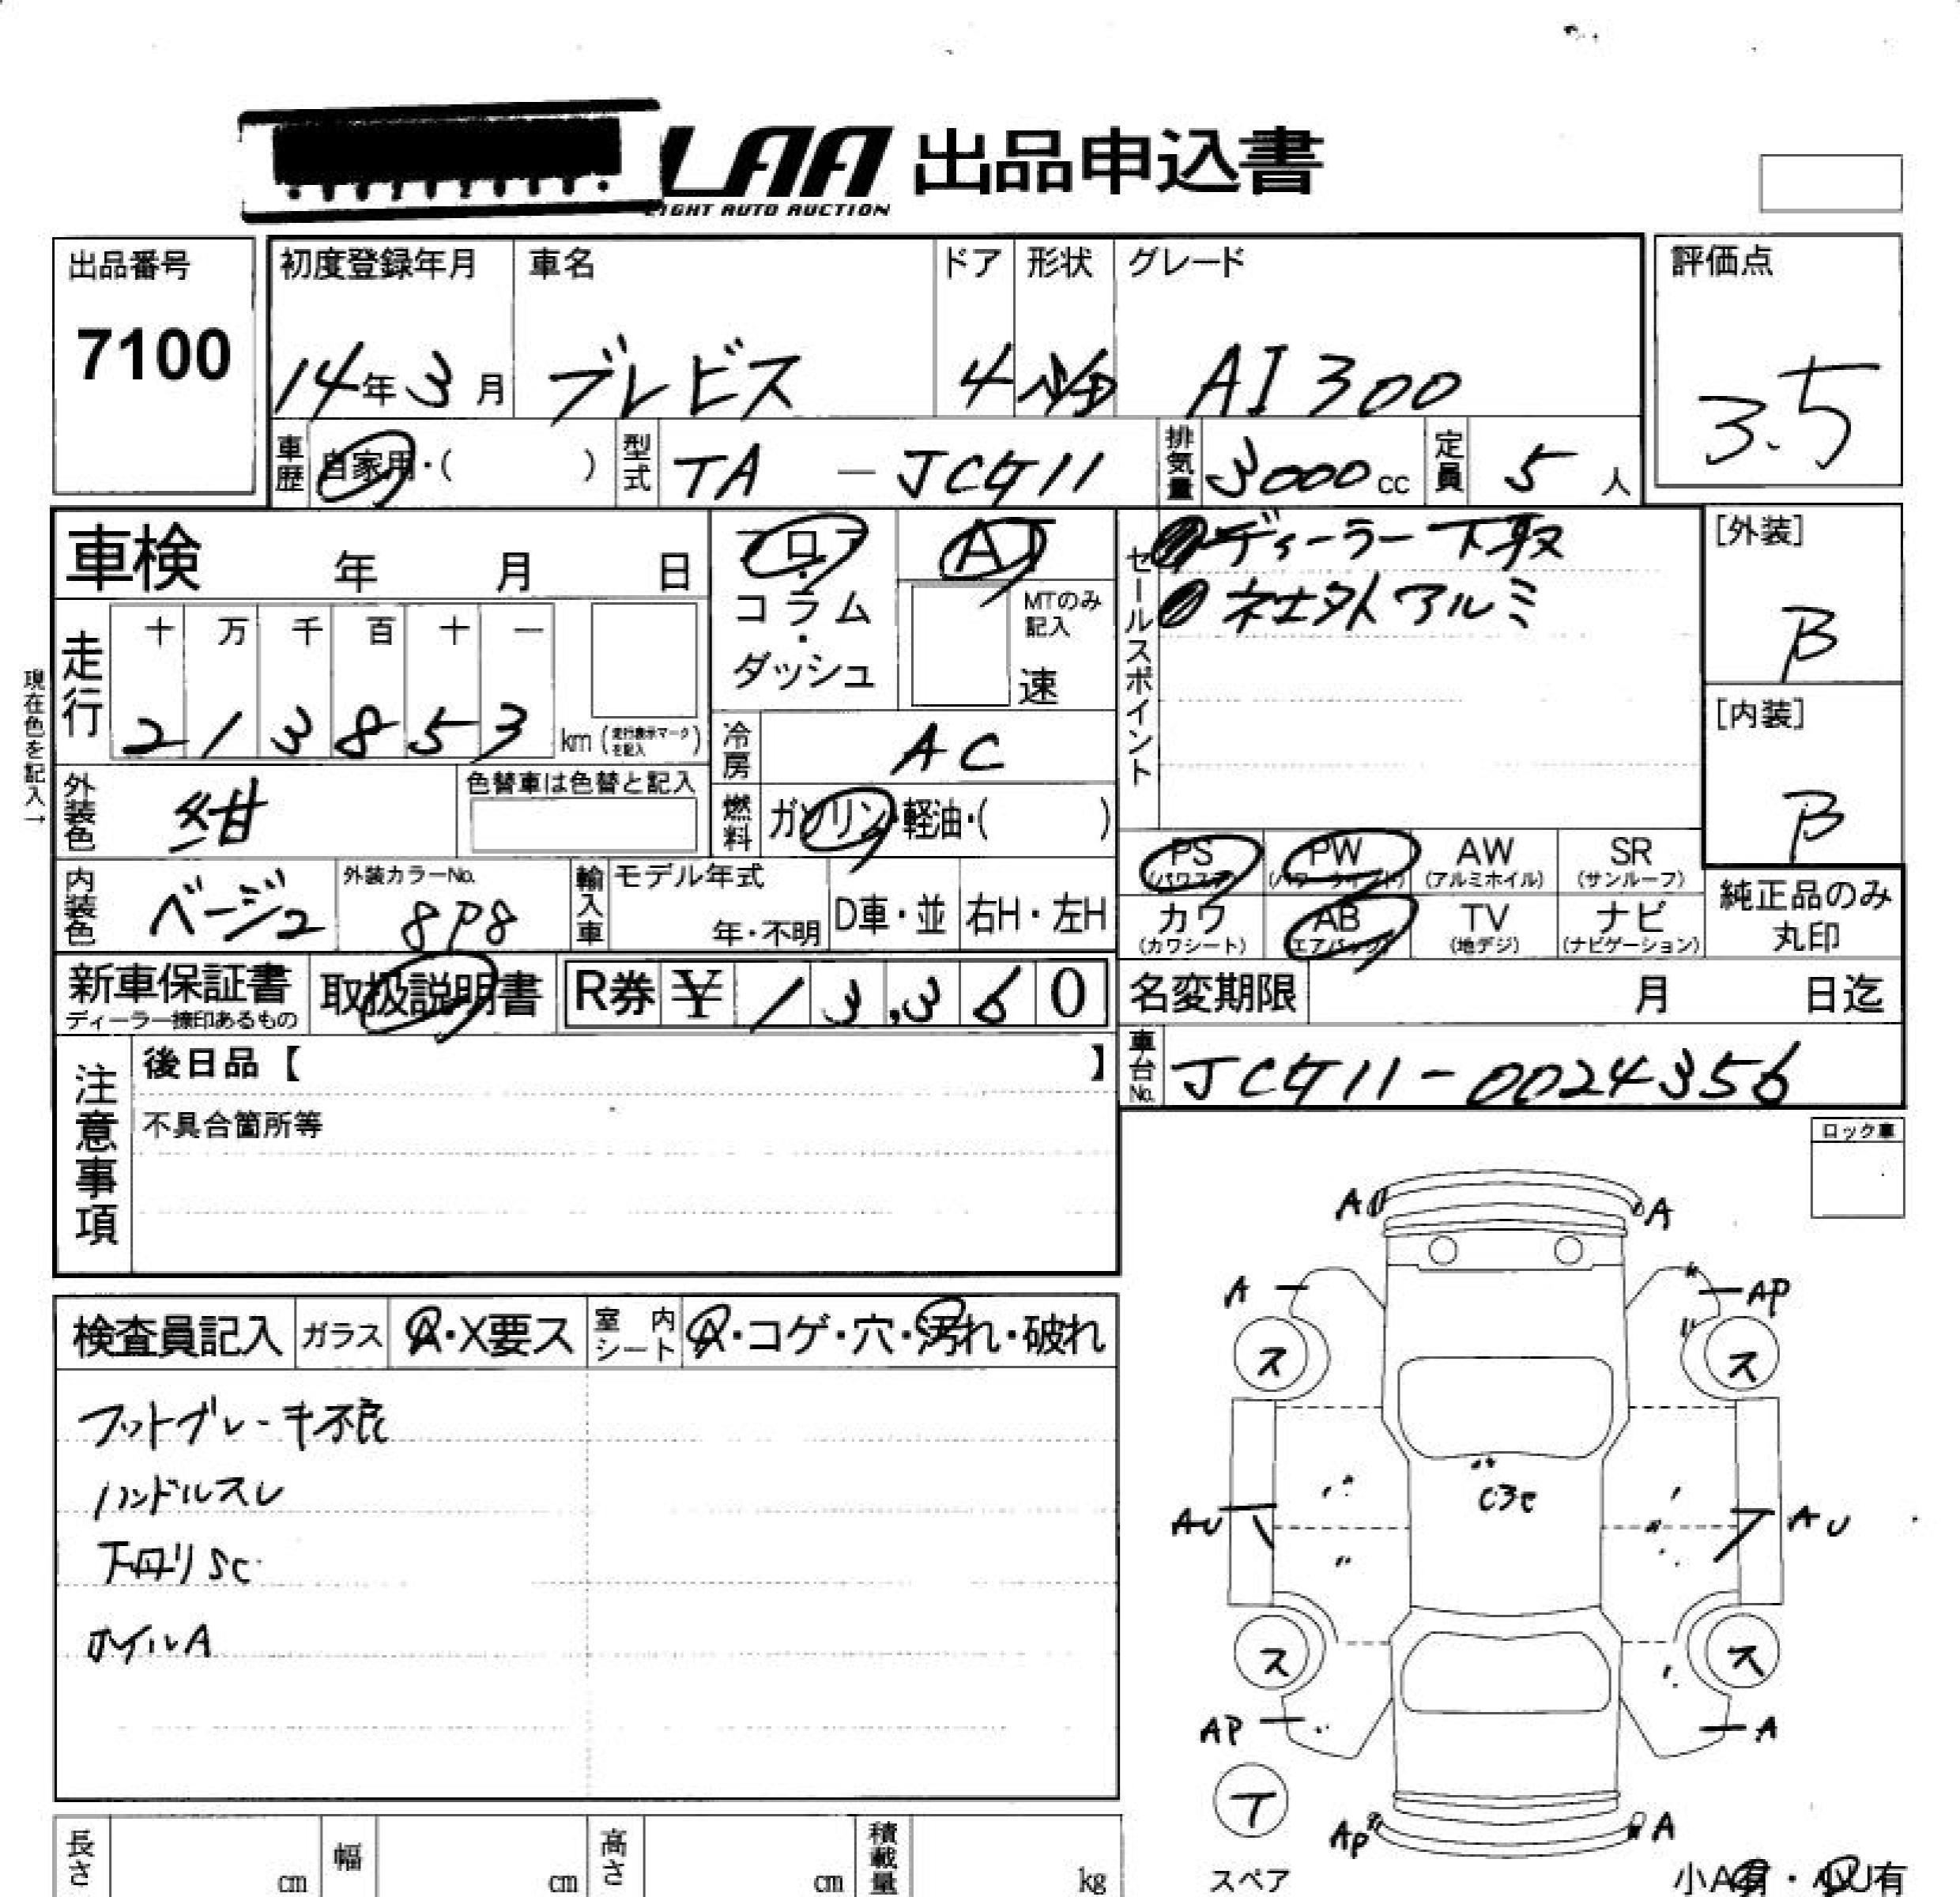 LAA 出品申込書
LIGHT AUTO AUCTION
出品番号 初度登録年月 車名 ドア 形状 グレード 評価点
7100 14年 3月 ブレビス 4 箱 AI 300 3.5
車歴 自家用・( ) 型式 TA - JCG11 排気量 3000cc 定員 5人
車検 年 月 日 フロア AT セールスポイント ディーラー下取 [外装]
コラム MTのみ記入 社外アルミ B
ダッシュ 速
走行 十 万 千 百 十 一
2 1 3 8 5 3 km (走行表示マークを記入) [内装]
現在色を記入→
冷房 AC B
外装色 紺 色替車は色替と記入 燃料 ガソリン・軽油・( )
PS (パワステ) PW AW (アルミホイル) SR (サンルーフ)
内装色 ベージュ 外装カラーNo. 8P8 輸入車 モデル年式 年・不明 D車・並 右H・左H
カワ (カワシート) AB (エアバック) TV (地デジ) ナビ (ナビゲーション) 純正品のみ丸印
新車保証書 取扱説明書 R券 ¥ 1 3,3 6 0 名変期限 月 日迄
ディーラー捺印あるもの
注意事項 後日品【 】 車台No. JCG11-0024356
不具合箇所等
ロック車
検査員記入 ガラス A・X要ス 室内シート A・コゲ・穴・汚れ・破れ
フットブレーキ不良
ハンドルスレ
下回りSC
ホイルA
A A
A AP
ス ス
C3E
AU AU
ス ス
AP A
T
AP A
スペア 小A有・小U有
長さ cm 幅 cm 高さ cm 積載量 kg